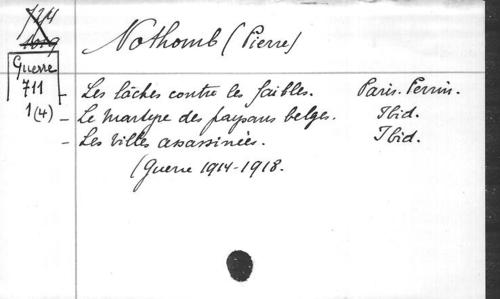 Nothomb (Pierre)
Guerre
711
1(4)
- Les lâches contre les faibles. Paris. Perrin.
- Le martyre des paysans belges. Ibid.
- Les villes assassinées. Ibid.
(Guerre 1914-1918.